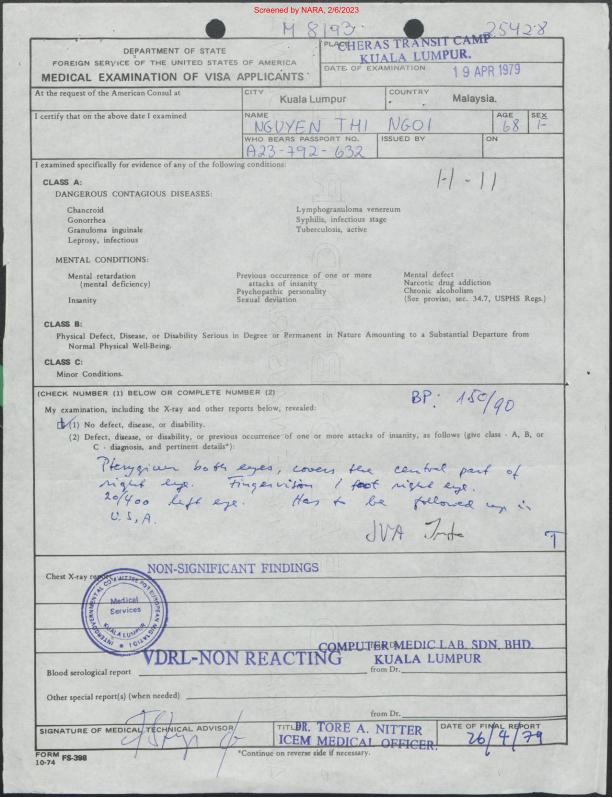 Screened by NARA, 2/6/2023
M 8/93 25428
DEPARTMENT OF STATE
FOREIGN SERVICE OF THE UNITED STATES OF AMERICA
MEDICAL EXAMINATION OF VISA APPLICANTS
PLACE CHERAS TRANSIT CAMP
KUALA LUMPUR.
DATE OF EXAMINATION 19 APR 1979
At the request of the American Consul at
CITY
Kuala Lumpur
COUNTRY
Malaysia.
I certify that on the above date I examined
NAME
NGUYEN THI NGOI
AGE
68
SEX
F
WHO BEARS PASSPORT NO.
A23-792-632
ISSUED BY
ON
I examined specifically for evidence of any of the following conditions:
H-11
CLASS A:
DANGEROUS CONTAGIOUS DISEASES:
Chancroid
Gonorrhea
Granuloma inguinale
Leprosy, infectious
Lymphogranuloma venereum
Syphilis, infectious stage
Tuberculosis, active
MENTAL CONDITIONS:
Mental retardation
(mental deficiency)
Insanity
Previous occurrence of one or more
attacks of insanity
Psychopathic personality
Sexual deviation
Mental defect
Narcotic drug addiction
Chronic alcoholism
(See proviso, sec. 34.7, USPHS Regs.)
CLASS B:
Physical Defect, Disease, or Disability Serious in Degree or Permanent in Nature Amounting to a Substantial Departure from
Normal Physical Well-Being.
CLASS C:
Minor Conditions.
(CHECK NUMBER (1) BELOW OR COMPLETE NUMBER (2)
BP: 150/90
My examination, including the X-ray and other reports below, revealed:
(1) No defect, disease, or disability.
(2) Defect, disease, or disability, or previous occurrence of one or more attacks of insanity, as follows (give class - A, B, or
C - diagnosis, and pertinent details*):
Pterygium both eyes, covers the central part of
right eye. Fingervision 1 foot right eye.
20/400 left eye. Has to be followed up in
U.S.A.
Chest X-ray report
NON-SIGNIFICANT FINDINGS
INTERGOVERNMENTAL COMMITTEE FOR EUROPEAN MIGRATION
Medical
Services
KUALA LUMPUR
COMPUTER MEDIC LAB. SDN. BHD.
VDRL-NON REACTING
KUALA LUMPUR
Blood serological report
from Dr.
Other special report(s) (when needed)
from Dr.
SIGNATURE OF MEDICAL TECHNICAL ADVISOR
TITLE DR. TORE A. NITTER
ICEM MEDICAL OFFICER.
DATE OF FINAL REPORT
26/4/79
FORM FS-398
10-74
*Continue on reverse side if necessary.